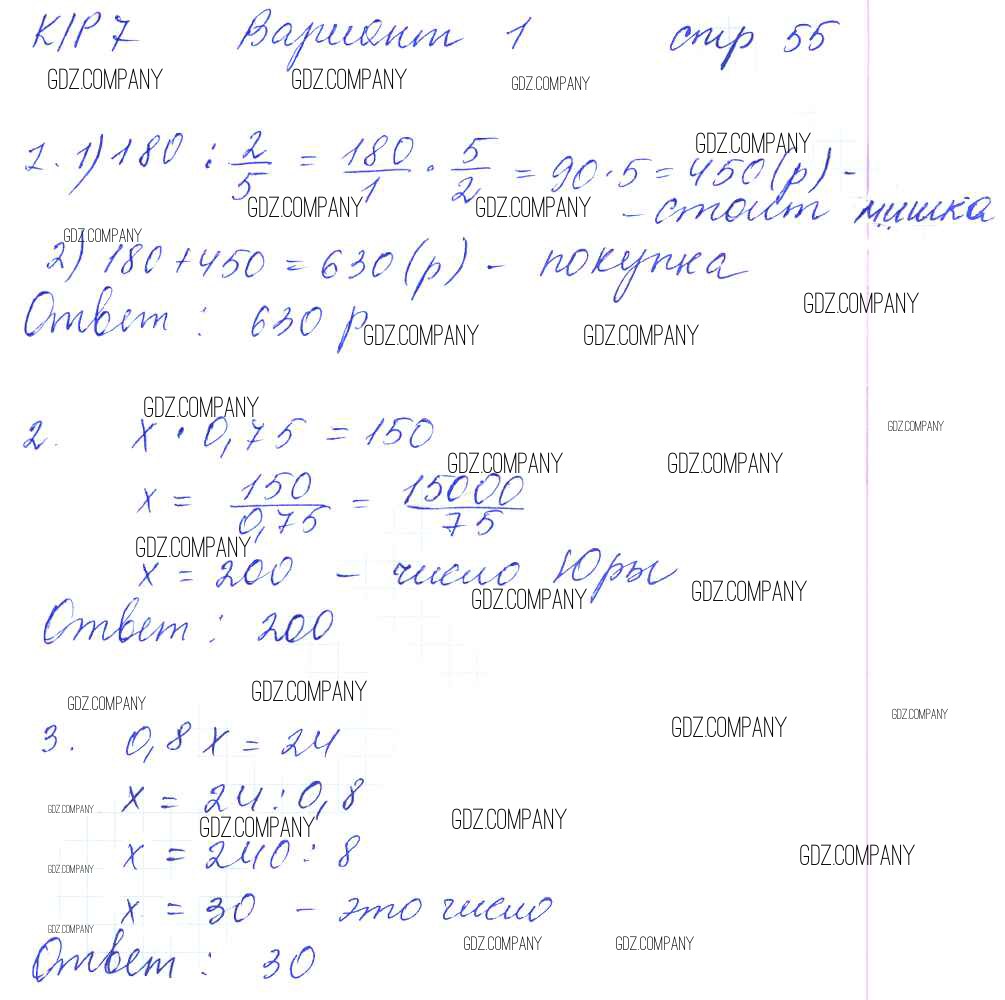 К/Р 7 Вариант 1 стр 55
GDZ.COMPANY GDZ.COMPANY GDZ.COMPANY
GDZ.COMPANY
1. 1) 180 : 2/5 = 180/1 · 5/2 = 90 · 5 = 450 (р) -
GDZ.COMPANY GDZ.COMPANY
- стоит мишка
GDZ.COMPANY
2) 180 + 450 = 630 (р) - покупка
GDZ.COMPANY
Ответ : 630 р
GDZ.COMPANY GDZ.COMPANY
GDZ.COMPANY
GDZ.COMPANY
2. x · 0,75 = 150
GDZ.COMPANY GDZ.COMPANY
x = 150/0,75 = 15000/75
GDZ.COMPANY
x = 200 - число Юры
GDZ.COMPANY GDZ.COMPANY
Ответ : 200
GDZ.COMPANY GDZ.COMPANY
GDZ.COMPANY GDZ.COMPANY
3. 0,8 x = 24
x = 24 : 0,8
GDZ.COMPANY GDZ.COMPANY GDZ.COMPANY
x = 240 : 8
GDZ.COMPANY GDZ.COMPANY
x = 30 - это число
GDZ.COMPANY GDZ.COMPANY GDZ.COMPANY
Ответ : 30